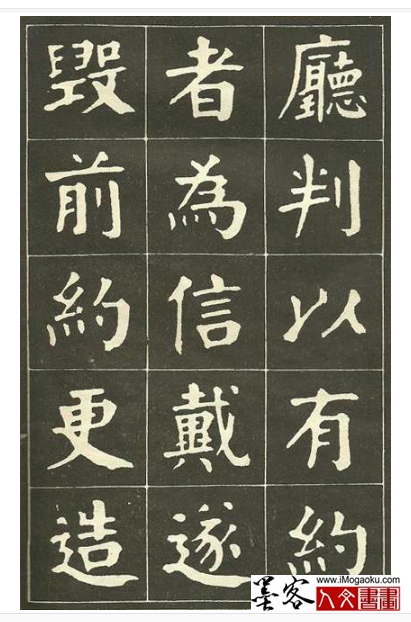 廳判以有約
者為信戴遂
毀前約更造
www.iMogaoku.com
墨客
人文書畫